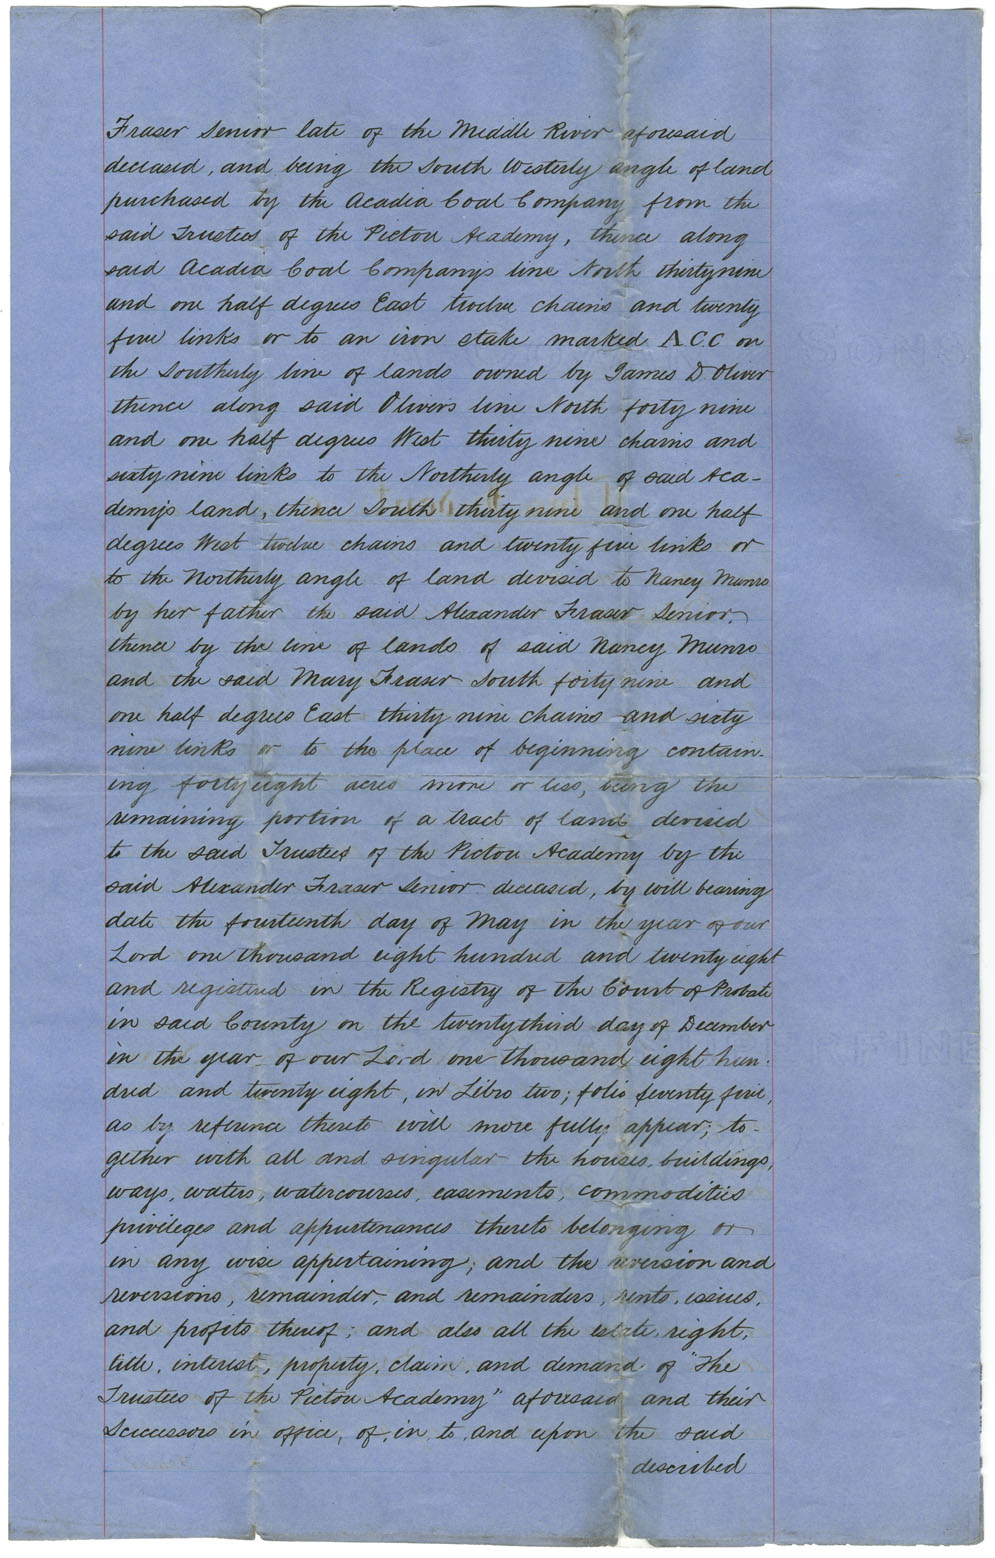 Fraser Senior late of the Middle River aforesaid
deceased, and being the South Westerly angle of land
purchased by the Acadia Coal Company from the
said Trustees of the Pictou Academy, thence along
said Acadia Coal Company's line North thirtynine
and one half degrees East twelve chains and twenty
five links or to an iron stake marked A C C on
the Southerly line of lands owned by James D Oliver
thence along said Olivers line North forty nine
and one half degrees West thirty nine chains and
sixty nine links to the Northerly angle of said Aca-
demy's land, thence South thirty nine and one half
degrees West twelve chains and twenty five links or
to the Northerly angle of land devised to Nancy Munro
by her father the said Alexander Fraser Senior,
thence by the line of lands of said Nancy Munro
and the said Mary Fraser South forty nine and
one half degrees East thirty nine chains and sixty
nine links or to the place of beginning contain-
ing forty eight acres more or less, being the
remaining portion of a tract of land devised
to the said Trustees of the Pictou Academy by the
said Alexander Fraser Senior deceased, by will bearing
date the fourteenth day of May in the year of our
Lord one thousand eight hundred and twenty eight
and registered in the Registry of the Court of Probate
in said County on the twentythird day of December
in the year of our Lord one thousand eight hun-
dred and twenty eight, in Libro two; folio seventy five,
as by reference thereto will more fully appear; to-
gether with all and singular the houses, buildings,
ways, waters, watercourses, easements, commodities
privileges and appurtenances thereto belonging or
in any wise appertaining; and the reversion and
reversions, remainder, and remainders, rents, issues,
and profits thereof; and also all the estate, right,
title, interest, property, claim, and demand of "The
Trustees of the Pictou Academy" aforesaid and their
Successors in office, of, in, to, and upon the said
described